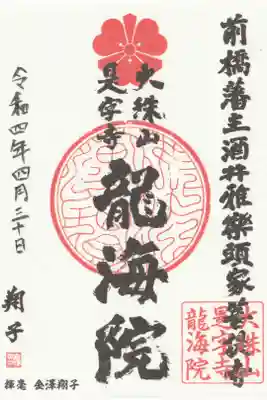 前橋藩主酒井雅樂頭家菩提寺
大珠山
是字寺
龍海院
令和四年四月三十日
翔子
揮毫 金澤翔子
大珠山
是字寺
龍海院